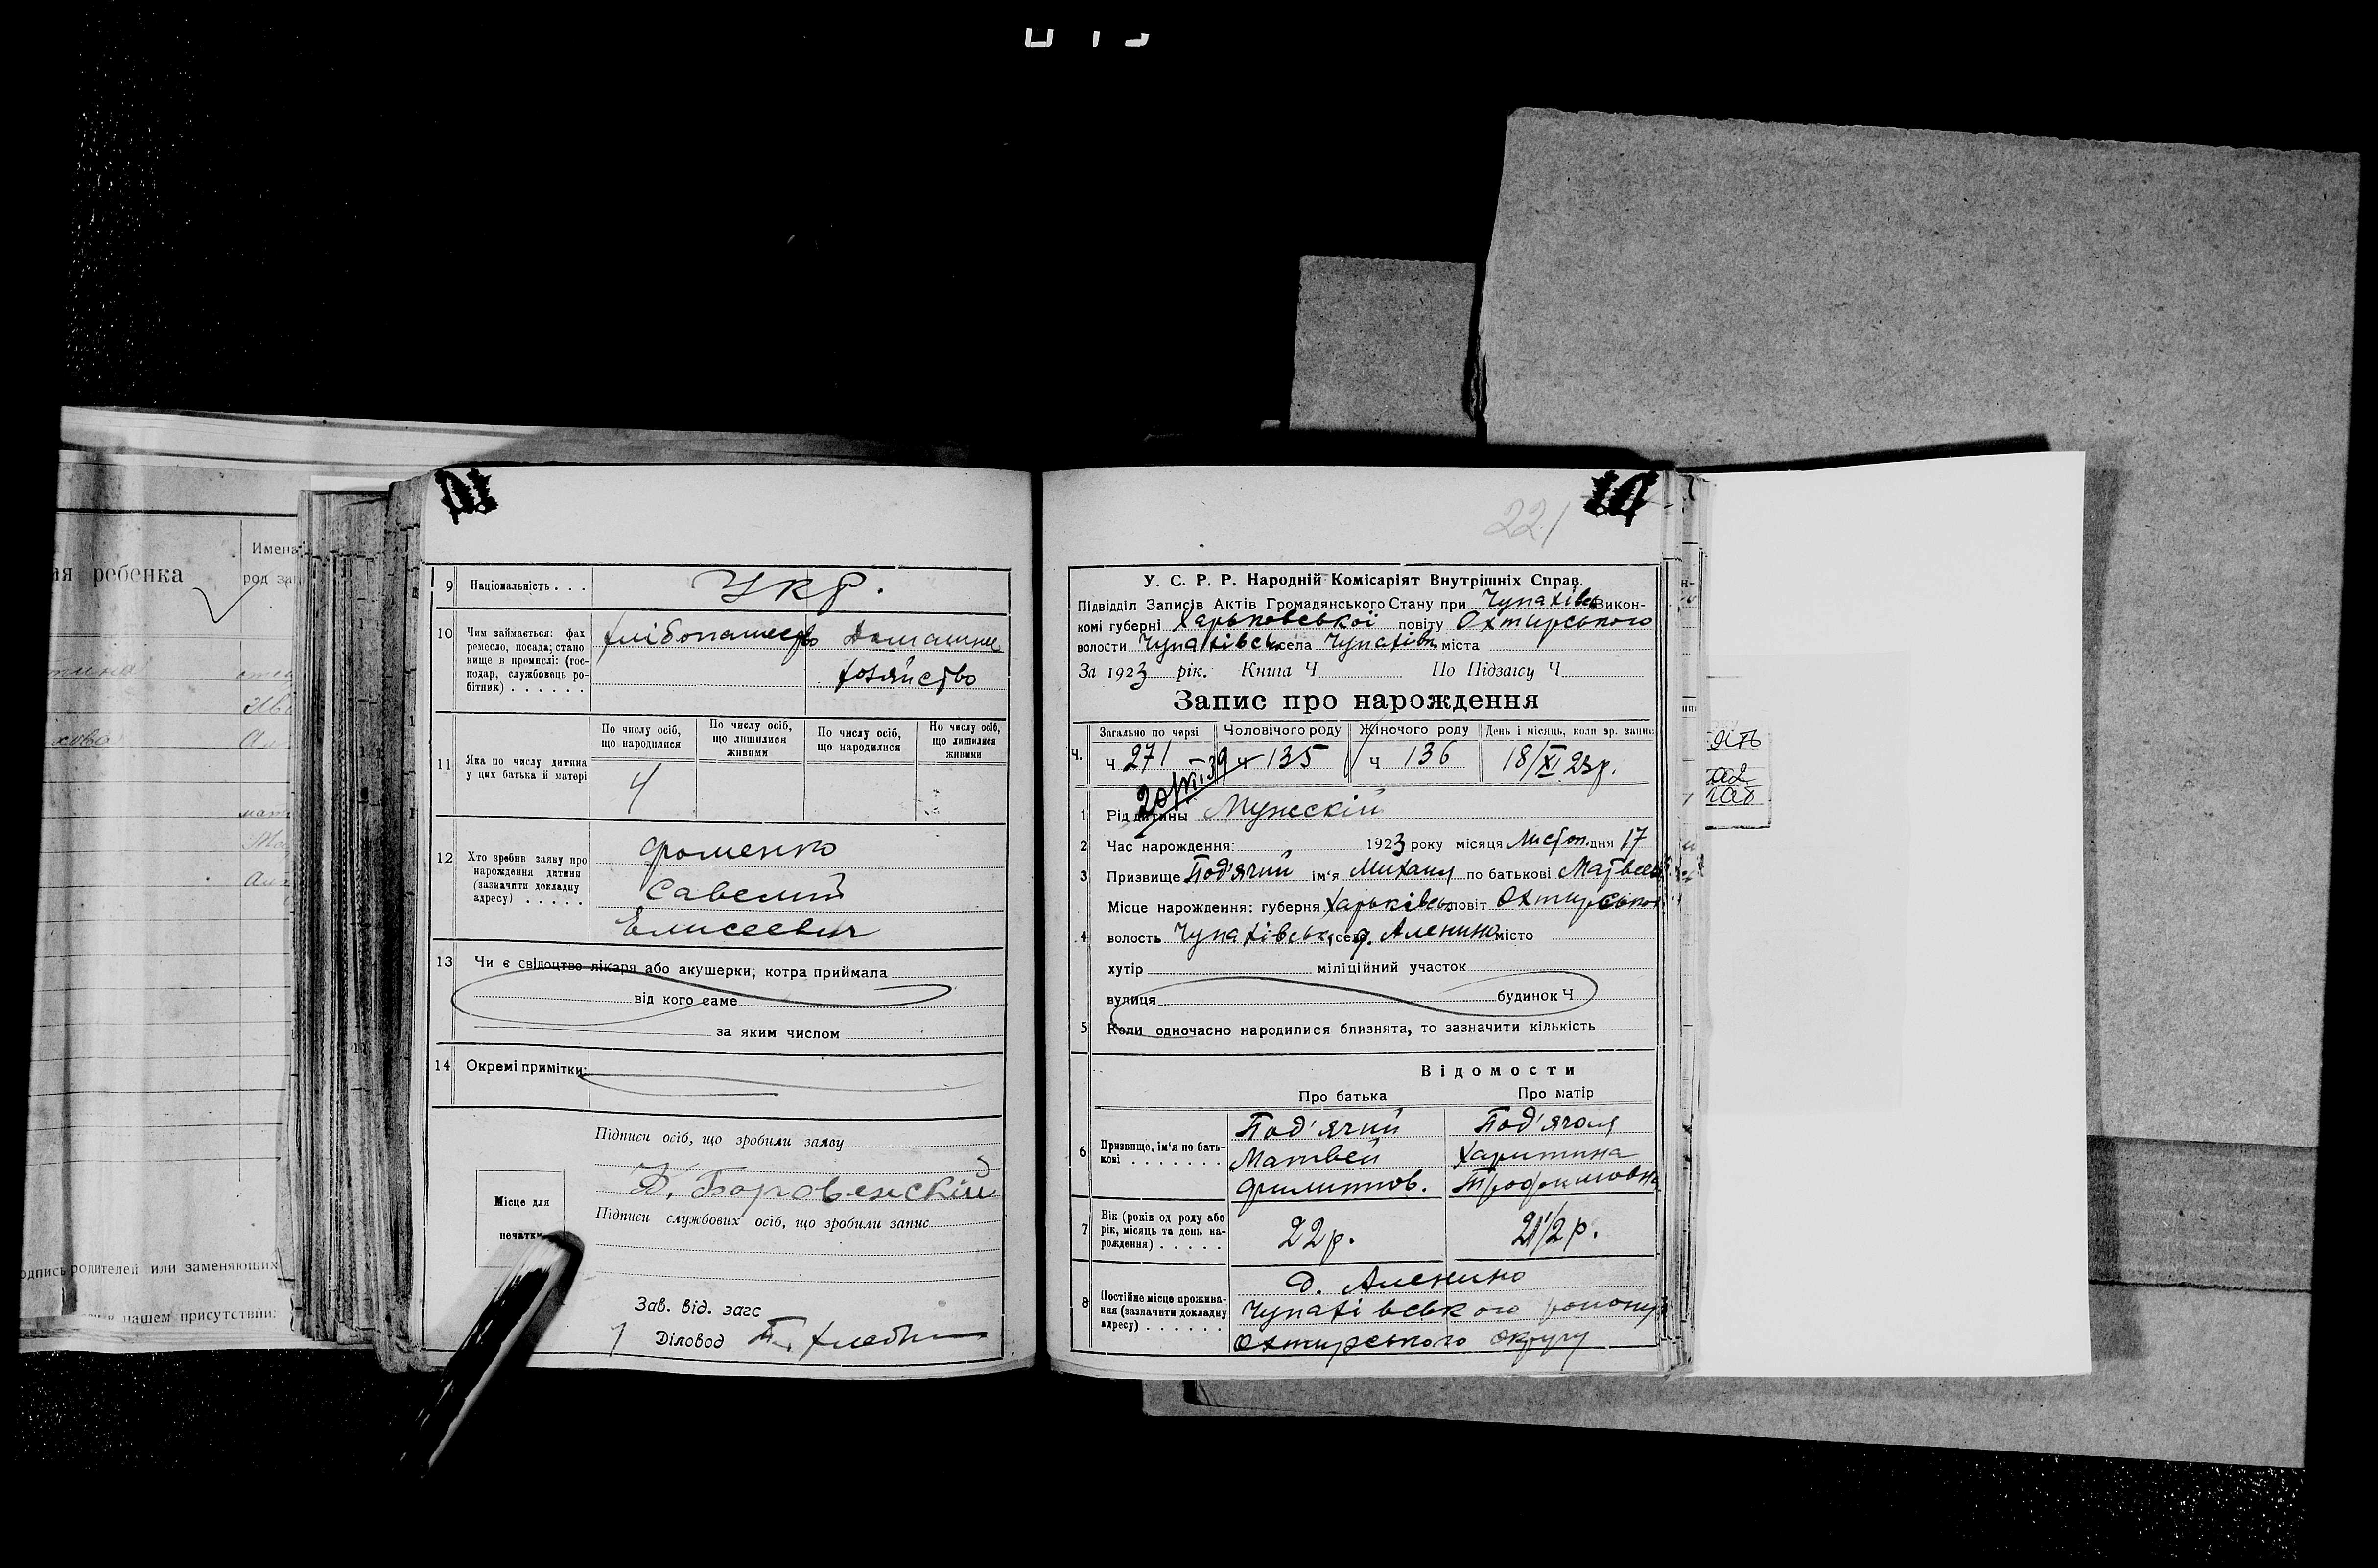 ребенка
Имена
род
9 Національність . . . Укр.
10 Чим займається: фах
ремесло, посада; стано
вище в промислі: (гос-
подар, службовець ро-
бітник) . . . . . .
хліборашество Домашнее
хозяйство
По числу осіб, що народилися
По числу осіб, що лишилися живими
По числу осіб, що народилися
Но числу осіб, що лишилися живими
11 Яка по числу дитина
у цих батька й матері
4
12 Хто зробив заяву про
нарождення дитини
(зазначити докладну
адресу) . . . . .
Фоменко
Савелий
Елисеевич
13 Чи є свідоцтво лікаря або акушерки, котра приймала
від кого саме
за яким числом
14 Окремі примітки:
Підписи осіб, що зробили заяву
Боровенский
Підписи службових осіб, що зробили запис
Місце для
печатки
Зав. від. загс
Діловод
родителей или заменяющих
нашем присутствии:
221
У. С. Р. Р. Народній Комісаріят Внутрішніх Справ.
Підвідділ Записів Актів Громадянського Стану при Чупахівск Викон-
комі губерні Харьковської повіту Охтирського
волости Чупахівськ села Чупахівк міста
За 1923 рік. Книга Ч По Підзаісу Ч
Запис про нарождення
Загально по черзі Чоловічого роду Жіночого роду День і місяць, коли зр. запис
Ч. ч 271 ч 135 ч 136 18/XI 23р.
1 Рід дитины Мужскій
2 Час нарождення: 1923 року місяця Листоп. дня 17
3 Призвище Под'ячий ім'я Михаил по батькові Матвеев
Місце нарождення: губерня Харьківськ повіт Охтирськ
4 волость Чупахівськ, село д. Аленино місто
хутір міліційний участок
вулиця будинок Ч
5 Коли одночасно народилися близнята, то зазначити кількість
Відомости
Про батька Про матір
6 Призвище, ім'я по бать-
кові . . . . . . .
Под'ячий Под'ячая
Матвей Харитина
Филиппов. Трофимовна
7 Вік (років од роду або
рік, місяць та день на-
рождення) . . . . .
22р. 21 1/2 р.
8 Постійне місце прожива-
ння (зазначити докладну
адресу) . . . . . .
д. Аленино
Чупахівського району
Охтирського округу